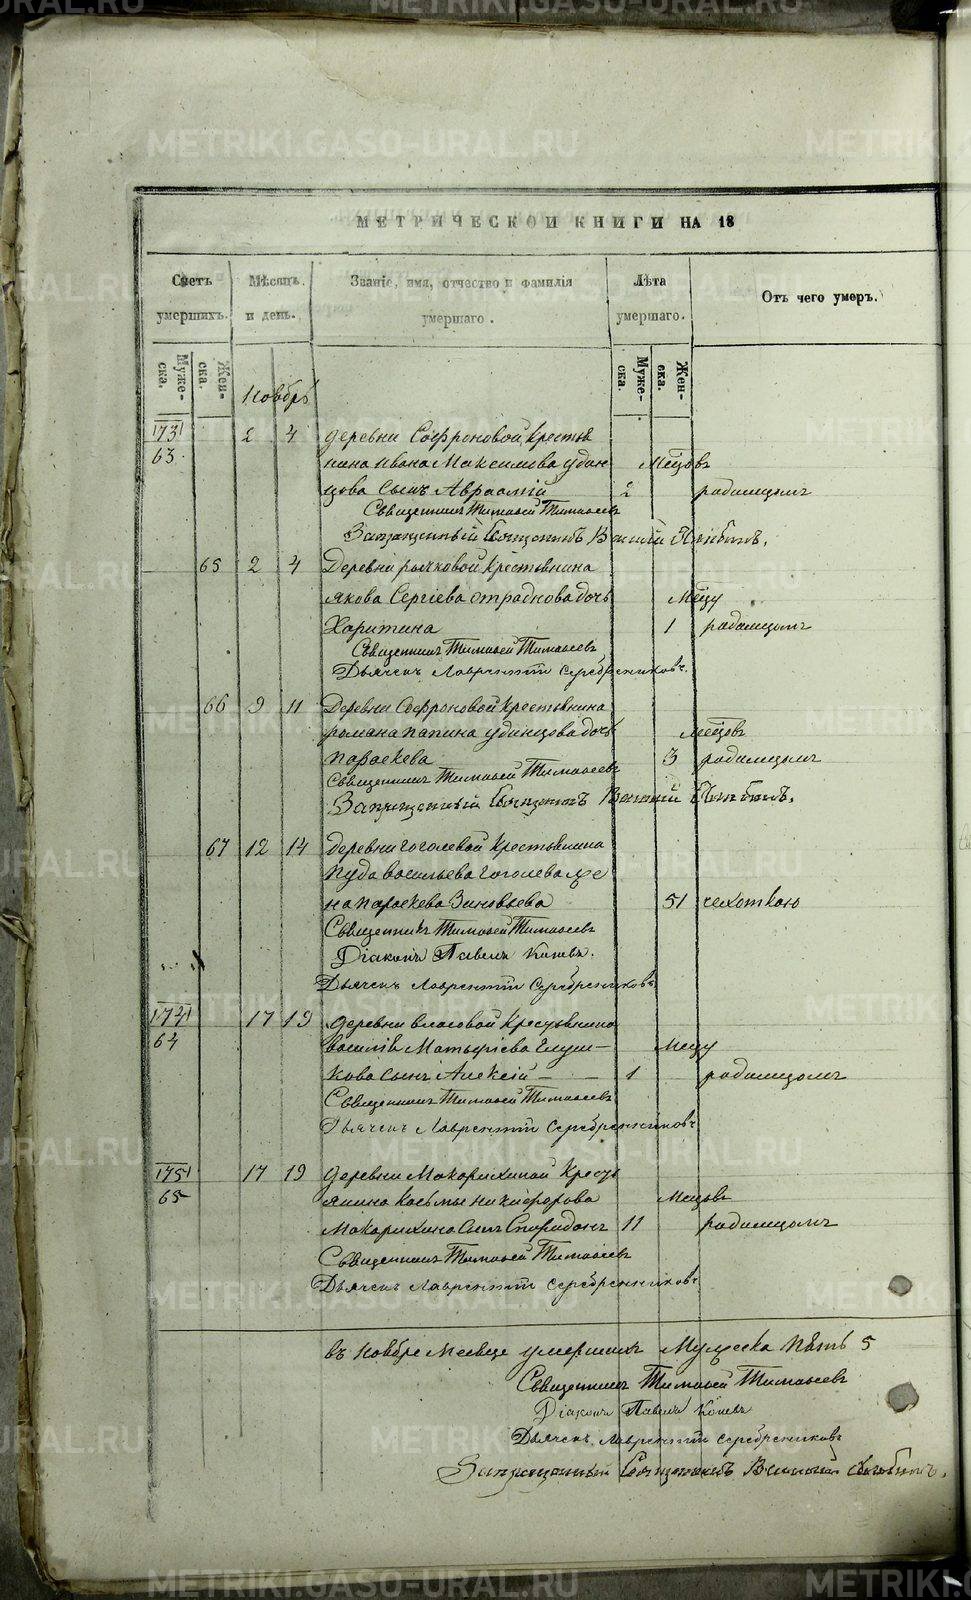 METRIKI.GASO-URAL.RU
МЕТРИЧЕСКОЙ КНИГИ НА 18
Счетъ умершихъ.
Мѣсяцъ и день.
Званіе, имя, отчество и фамилія умершаго.
Лѣта умершаго.
Отъ чего умеръ.
Муже-ска. Жен-ска.
Муже-ска. Жен-ска.
Ноябрь
173
63
2 4 деревни Софроновой крестья
нина Ивана Максимова Удин
цова сынъ Авраамій 2 Месяцовъ родимцомъ
Священникъ Тимофей Тимофеевъ
Запрещенный Священникъ
65 2 4 Деревни Рычковой крестьянина
Якова Сергіева Отраднова дочь
Харитина 1 Месяцу родимцомъ
Священникъ Тимофей Тимофеевъ
Дьячекъ Лаврентій Серебрениковъ.
66 9 11 Деревни Софроновой крестьянина
Романа Папина Удинцова дочь
Параскева 3 месяцовъ родимцомъ
Священникъ Тимофей Тимофеевъ
Запрещенный Священникъ
67 12 14 деревни Гоголевой крестьянина
Пуда Васильева Гоголева же
на Параскева Зиновьева 51 чехоткою
Священникъ Тимофей Тимофеевъ
Діаконъ Павелъ
Дьячекъ Лаврентій Серебрениковъ
174
64
17 19 деревни Власовой крестьянина
Василія
кова сынъ Алексій — — 1 Месяцу родимцомъ
Священникъ Тимофей Тимофеевъ
Дьячекъ Лаврентій Серебренниковъ
175
65
17 19 деревни Макарихиной кресть
янина Касьмы Никифорова
Макарихина сынъ Спиридонъ 11 Месяцовъ родимцомъ
Священникъ Тимофей Тимофеевъ
Дьячекъ Лаврентій Серебренниковъ
въ Ноябре месяце умершихъ Мужеска пять 5
Священникъ Тимофей Тимофеевъ
Діаконъ Павелъ
Дьячекъ Лаврентій Серебрениковъ
Запрещенный Священникъ